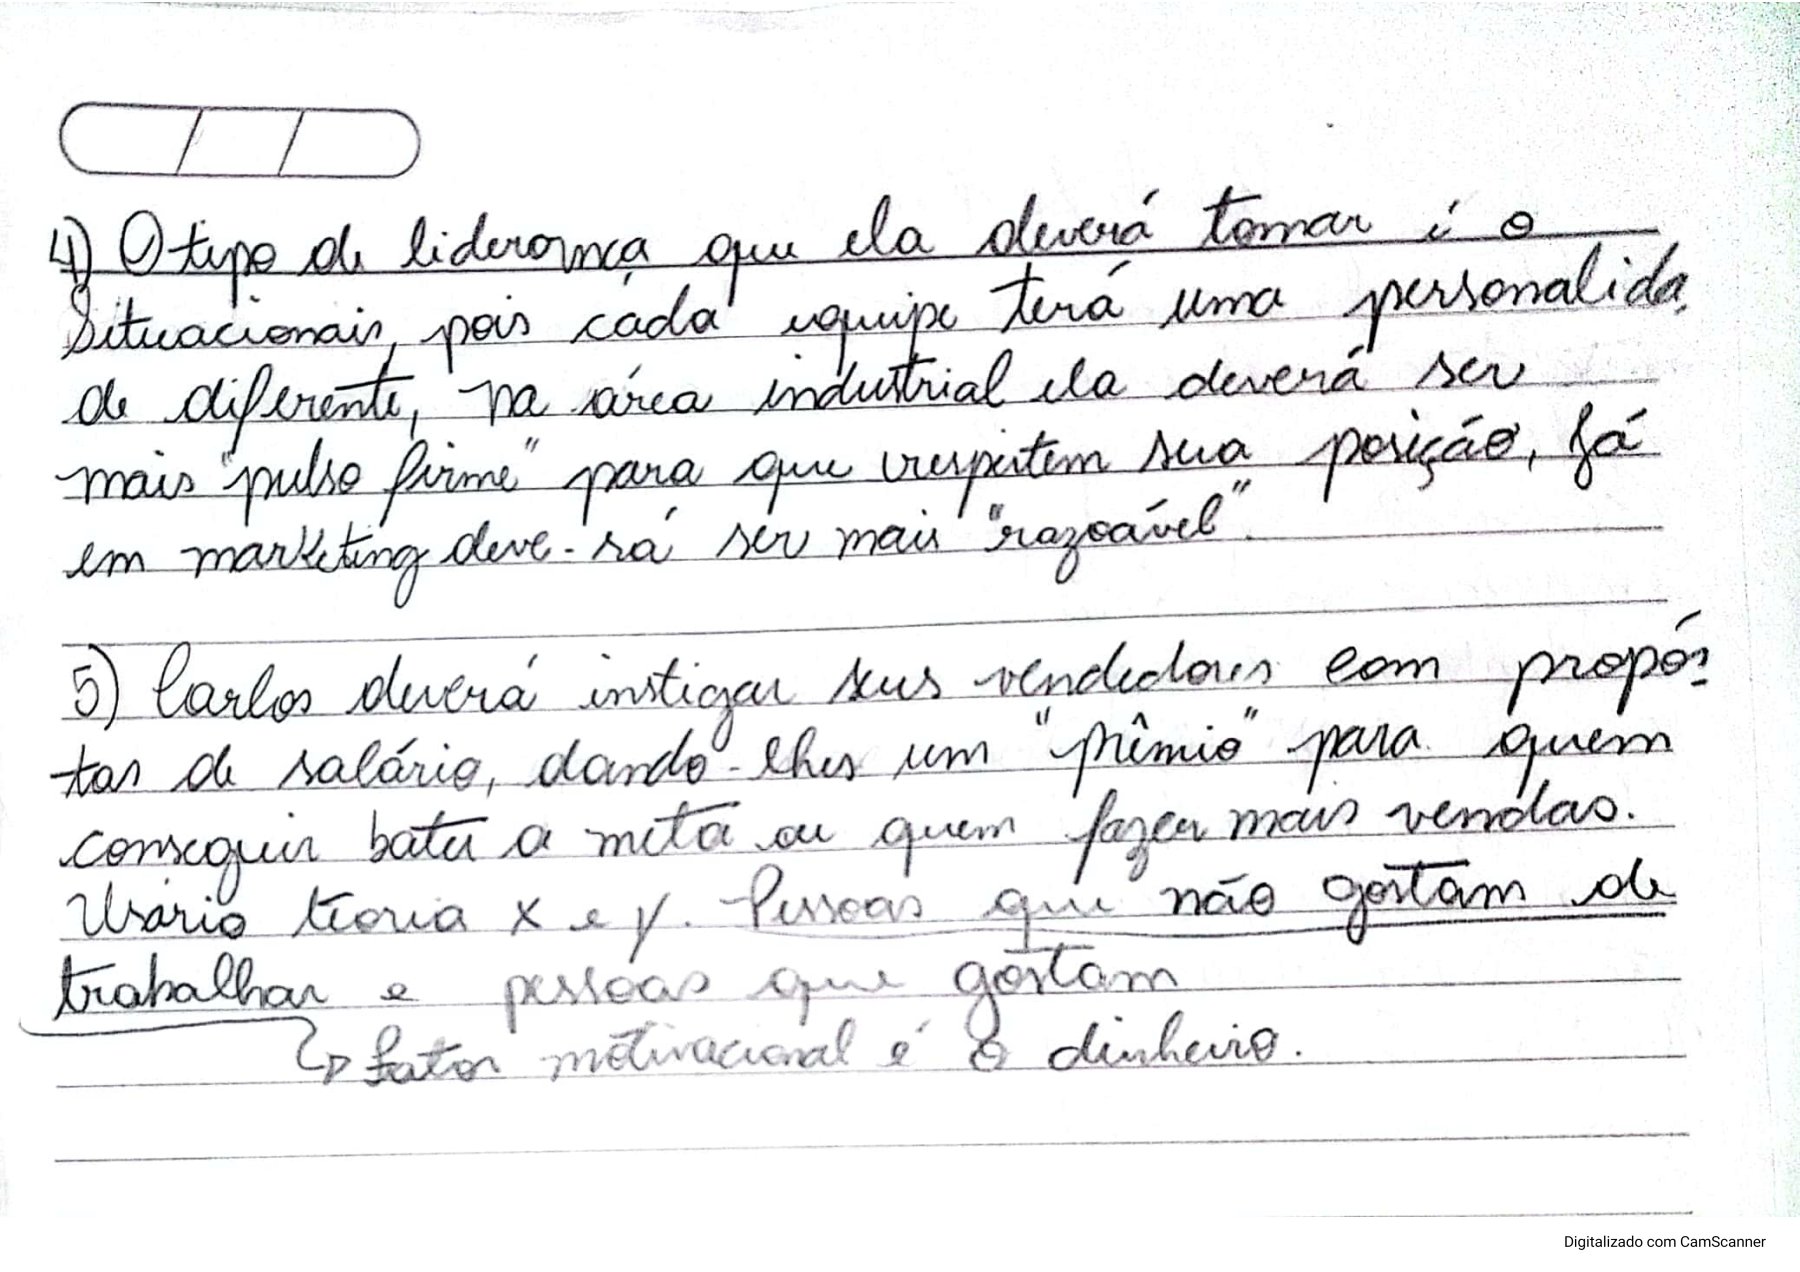 4) O tipo de liderança que ela deverá tomar é o
Situacionais, pois cada equipe terá uma personalida
de diferente, na área industrial ela deverá ser
mais "pulso firme" para que respeitem sua posição, Já
em marketing deve-rá ser mais "razoável".
5) Carlos deverá instigar seus vendedores com propós-
tas de salário, dando-lhes um "prêmio" para quem
conseguir bater a meta ou quem fazer mais vendas.
Usario teoria x e y. Pessoas que não gostam de
trabalhar e pessoas que gostam
↳ fator motivacional é o dinheiro.
Digitalizado com CamScanner